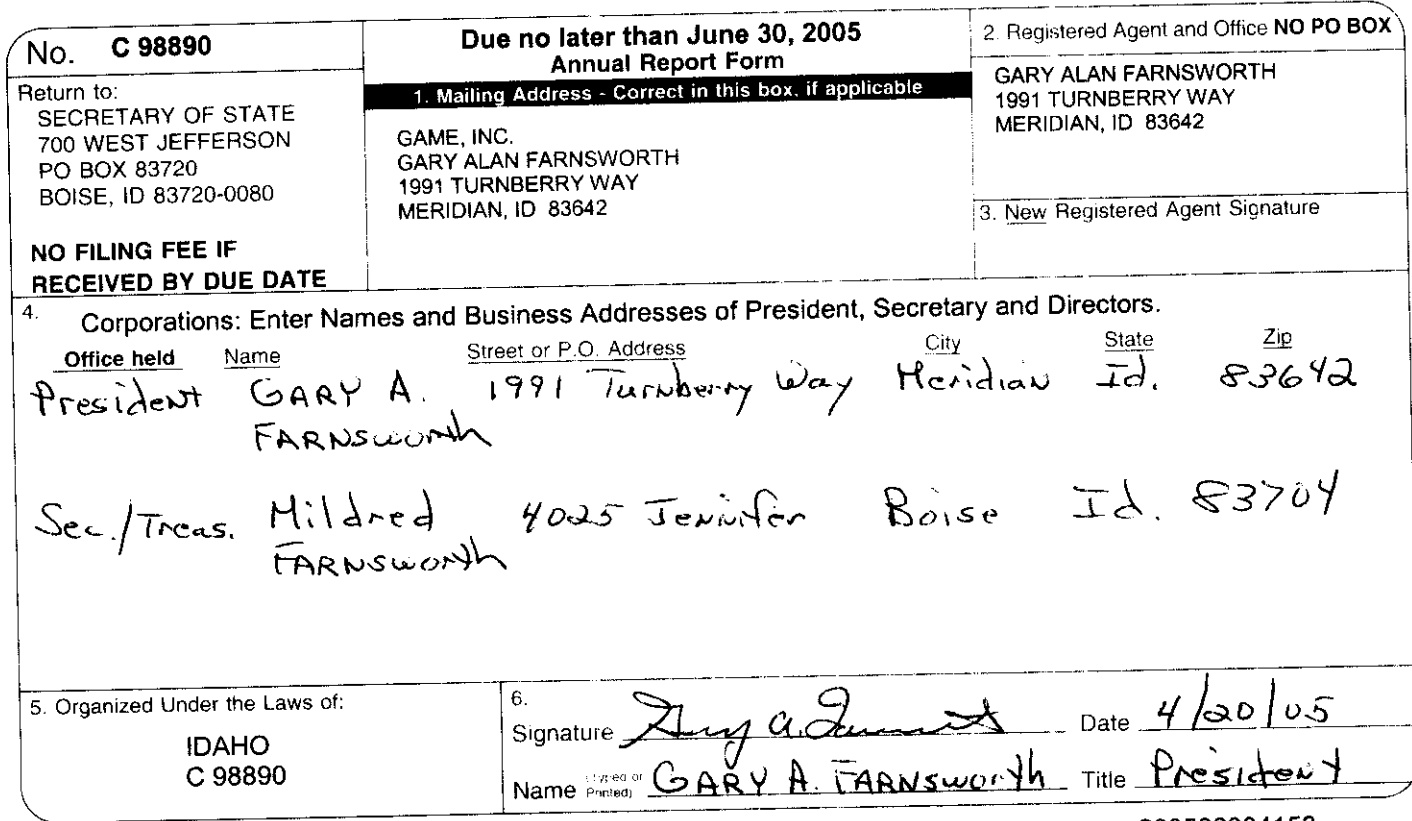 No. C 98890
Return to:
SECRETARY OF STATE
700 WEST JEFFERSON
PO BOX 83720
BOISE, ID 83720-0080
NO FILING FEE IF
RECEIVED BY DUE DATE
Due no later than June 30, 2005
Annual Report Form
1. Mailing Address - Correct in this box, if applicable
GAME, INC.
GARY ALAN FARNSWORTH
1991 TURNBERRY WAY
MERIDIAN, ID 83642
2. Registered Agent and Office NO PO BOX
GARY ALAN FARNSWORTH
1991 TURNBERRY WAY
MERIDIAN, ID 83642
3. New Registered Agent Signature
4. Corporations: Enter Names and Business Addresses of President, Secretary and Directors.
Office held Name Street or P.O. Address City State Zip
President GARY A. 1991 Turnberry Way Meridian Id. 83642
FARNSWORTH
Sec./Treas. Mildred 4025 Jennifer Boise Id. 83704
FARNSWORTH
5. Organized Under the Laws of:
IDAHO
C 98890
6.
Signature Gary A. Date 4/20/05
Name (Typed or Printed) GARY A. FARNSWORTH Title President